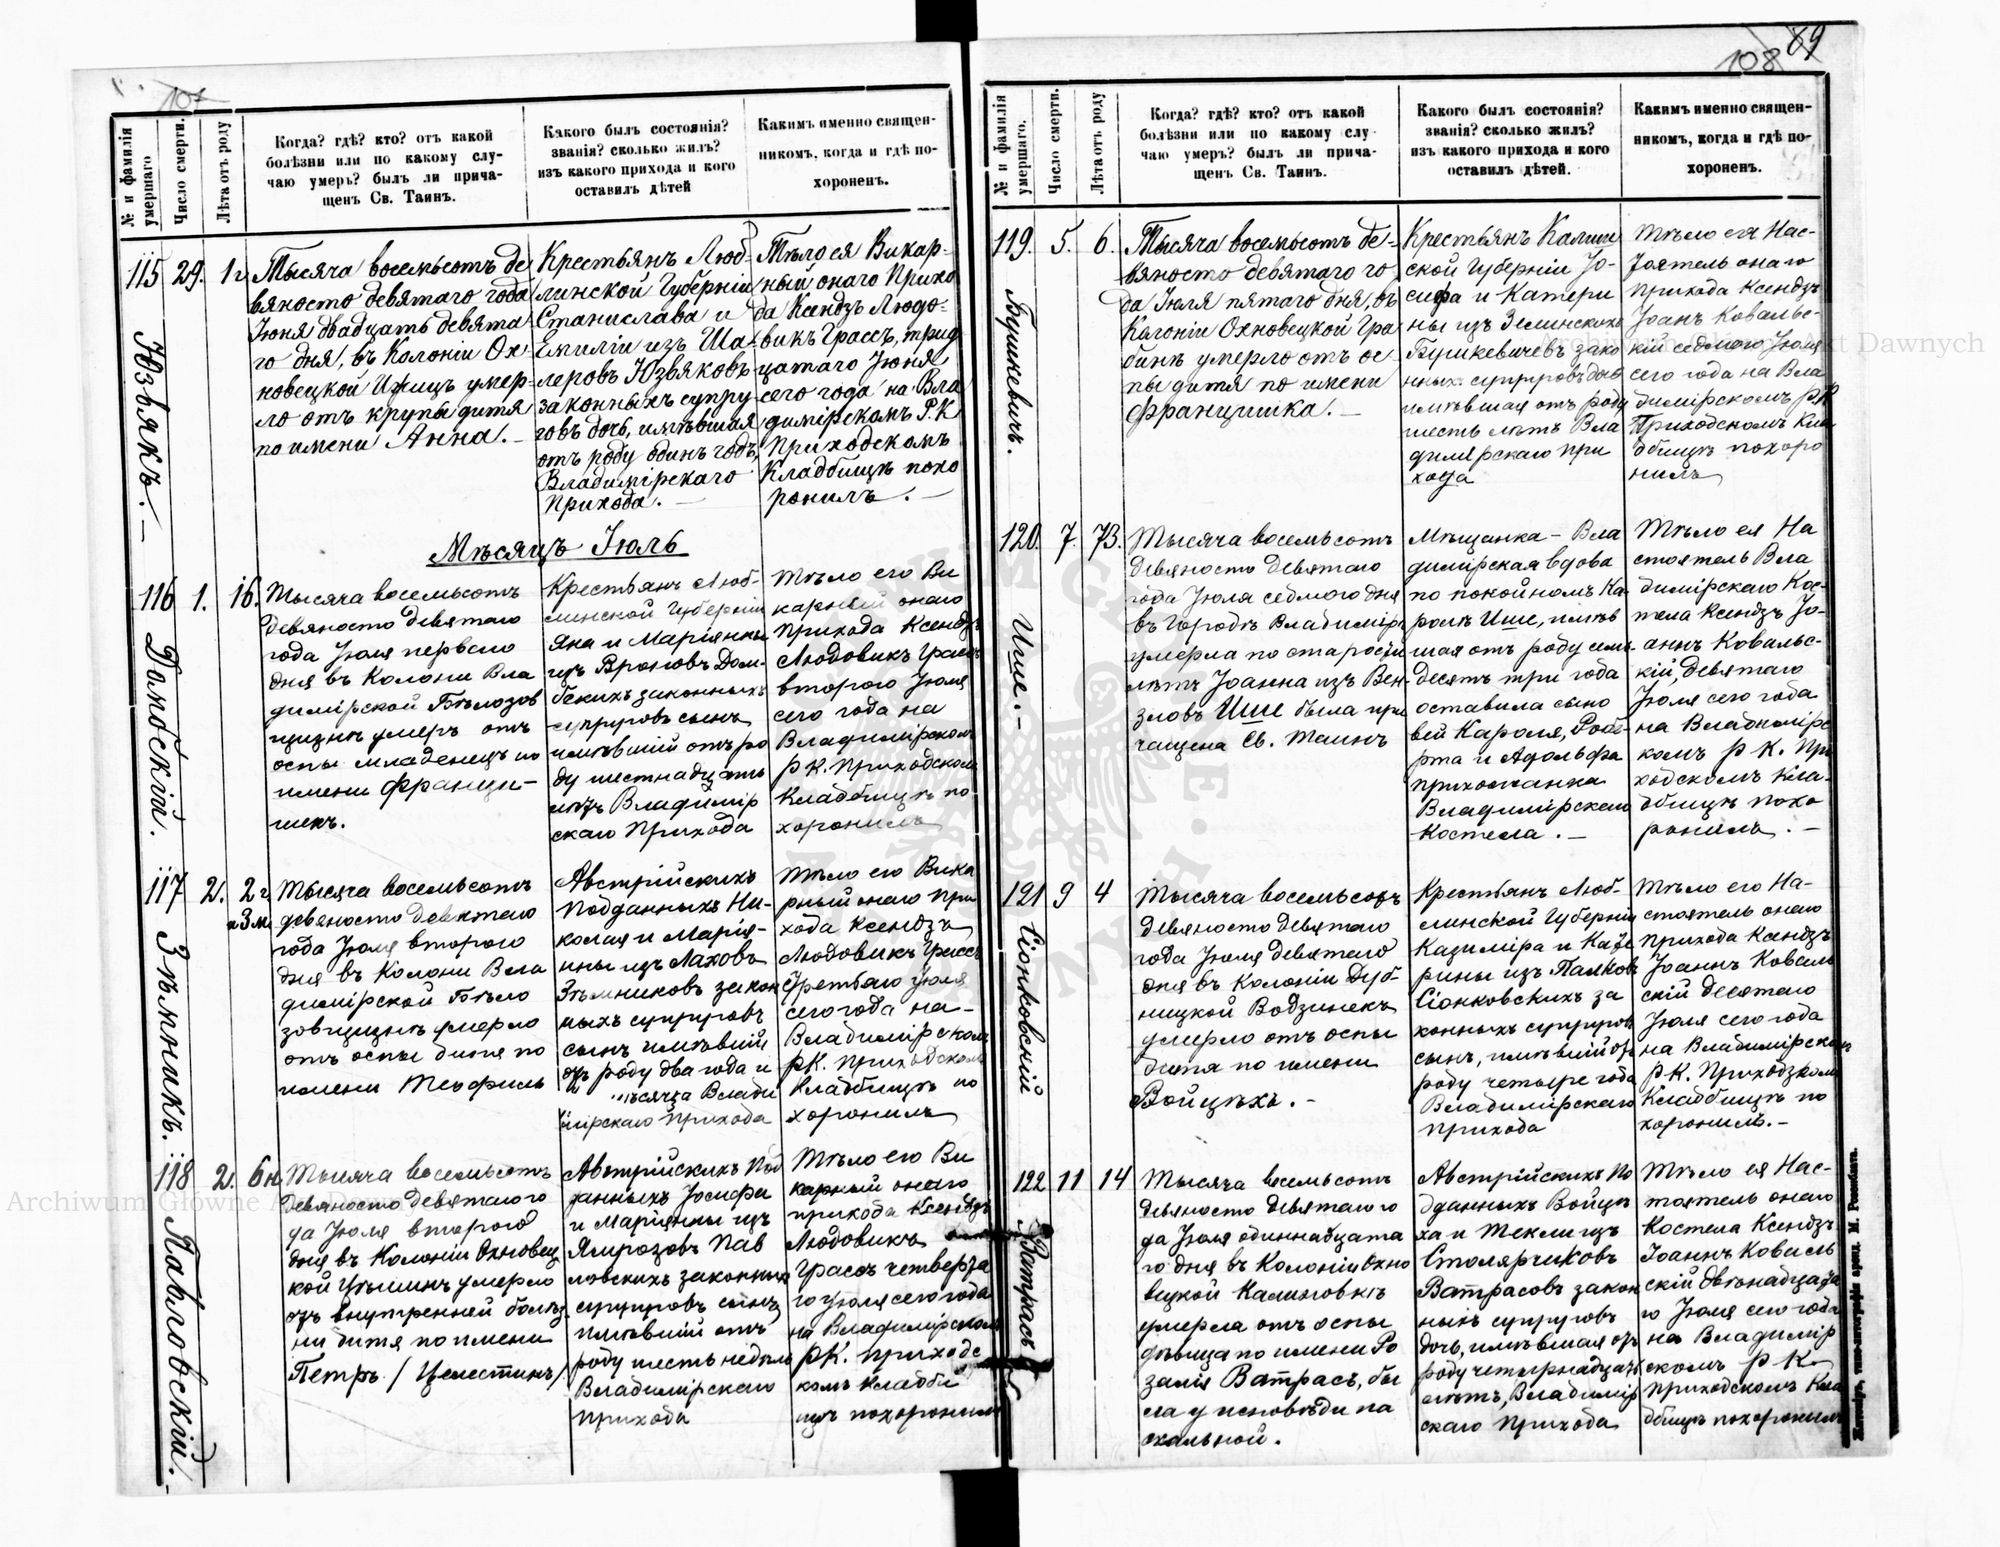 107
№ и фамилія умершаго
Число смерти.
Лѣта отъ роду
Когда? гдѣ? кто? отъ какой
болѣзни или по какому слу-
чаю умеръ? былъ ли прича-
щенъ Св. Таинъ.
Какого былъ состоянія?
званія? сколько жилъ?
изъ какого прихода и кого
оставилъ дѣтей
Какимъ именно священ-
никомъ, когда и гдѣ по-
хороненъ.
115
Юзвякъ. —
29.
1 г.
Тысяча восемьсотъ де
вяносто девятаго года
Іюня двадцать девята
го дня, въ Колоніи Ох
новецкой умер-
ло отъ крупы дитя
по имени Анна. —
Крестьянъ Люб-
линской Губерніи
Станислава и
Емиліи изъ Ша-
леровъ Юзвяковъ
законныхъ супру
говъ дочь, имѣвшая
отъ роду одинъ годъ,
Владимірскаго
Прихода. —
Тѣло ея Викар-
ный онаго Прихо
да Ксендзъ Людо-
викъ Грассъ, трид
цатаго Іюня
сего года на Вла
димірскомъ Р. К
Приходскомъ
Кладбищѣ похо
ронилъ. —
Мѣсяцъ Іюль
116
Домбскій.
1.
16.
Тысяча восемьсотъ
девяносто девятаго
года Іюля перваго
дня въ Колоніи Вла
димірской Бѣлозов
щизнѣ умеръ отъ
оспы младенецъ по
имени Францы-
шекъ.
Крестьянъ Люб-
линской Губерніи
Яна и Маріянны
изъ Вроновъ Дом-
бскихъ законныхъ
супруговъ сынъ
имѣвшій отъ ро
ду шестнадцать
лѣтъ Владимір
скаго Прихода
Тѣло его Ви
карный онаго
Прихода Ксендзъ
Людовикъ Грассъ
второго Іюля
сего года на
Владимірскомъ
Р К. Приходскомъ
Кладбищѣ по-
хоронилъ
117
Зѣмникъ.
2.
2 г.
и 3 м.
Тысяча восемьсотъ
девяносто девятаго
года Іюля второго
дня въ Колоніи Вла
димірской Бѣло
зовщизнѣ умерло
отъ оспы дитя по
имени Теофиль
Австрійскихъ
Подданныхъ Ни-
колая и Марія-
нны изъ Лаховъ
Зѣмниковъ закон
ныхъ супруговъ
сынъ имѣвшій
отъ роду два года и
мѣсяца Влади
мірскаго Прихода
Тѣло его Вика
рный онаго При
хода Ксендзъ
Людовикъ Грассъ
Третьяго Іюля
сего года на-
Владимірскомъ
РК. Приходскомъ
Кладбищѣ по
хоронилъ
118
Павловскій.
2.
6 н.
Тысяча восемьсотъ
девяносто девятаго го
да Іюля второго
дня въ Колоніи Охновец
кой умерло
отъ внутренней болѣз
ни дитя по имени
Петръ / Целестинъ /
Австрійскихъ Под
данныхъ Іосифа
и Маріянны изъ
Ямрозовъ Пав
ловскихъ законныхъ
супруговъ сынъ
имѣвшій отъ
роду шесть недѣль
Владимірскаго
Прихода
Тѣло его Ви
карный онаго
прихода Ксендзъ
Людовикъ
Грассъ четверта
го Іюля сего года
на Владимірском
РК. Приходс
комъ Кладби
щѣ похоронилъ
108 89
№ и фамилія умершаго.
Число смерти.
Лѣта отъ роду
Когда? гдѣ? кто? отъ какой
болѣзни или по какому слу-
чаю умеръ? былъ ли прича-
щенъ Св. Таинъ.
Какого былъ состоянія?
званія? сколько жилъ?
изъ какого прихода и кого
оставилъ дѣтей.
Какимъ именно священ-
никомъ, когда и гдѣ по-
хороненъ.
119.
Бушкевичъ.
5.
6.
Тысяча восемьсотъ де-
вяносто девятаго го
да Іюля пятаго дня, въ
Колоніи Охновецкой Гра
бинѣ умерло отъ ос
пы дитя по имени
Францишка. —
Крестьянъ Калиш
ской Губерніи Іо-
сифа и Катери
ны изъ Зелинскихъ
Бушкевичевъ зако
нныхъ супруговъ дочь
имѣвшая отъ роду
шесть лѣтъ Вла
димірскаго При
хода
Тѣло ея Нас-
тоятель онаго
Прихода Ксендзъ
Іоанъ Ковальс-
кій седмого Іюля
сего года на Вла
димірскомъ РК
Приходскомъ Кла
дбищѣ похоро
нилъ
120.
Ише. —
7.
73.
Тысяча восемьсотъ
девяносто девятаго
года Іюля седмого дня
въ Городѣ Владимірѣ
умерла по старости
лѣтъ Іоанна изъ Вен-
зловъ Ише была при
чащена Св. Таинъ
Мѣщанка — Вла
димірская вдова
по покойномъ Ка
ролѣ Ише, имѣв
шая отъ роду семь
десятъ три года
оставила сыно
вей Кароля, Робе
рта и Адольфа
прихожанка
Владимірскаго
Костела. —
Тѣло ея На
стоятель Вла
димірскаго Кос-
тела Ксендзъ Іо-
аннъ Ковальс-
кій, девятаго
Іюля сего года
на Владимірс
комъ Р К. При
ходскомъ Кла-
дбищѣ похо
ронилъ. —
121
Сіонковскій
9
4
Тысяча восемьсотъ
девяносто девятаго
года Іюля девятаго
дня въ Колоніи Дуб-
ницкой Водзинекъ
умерло отъ оспы
дитя по имени
Войцѣхъ. —
Крестьянъ Люб-
линской Губерніи
Казиміра и Кате
рины изъ Палковъ
Сіонковскихъ за
конныхъ супругов
сынъ, имѣвшій отъ
роду четыре года
Владимірскаго
Прихода
Тѣло его На-
стоятель онаго
Прихода Ксендзъ
Іоаннъ Коваль
скій десятаго
Іюля сего года
на Владимірском
Р.К. Приходском
Кладбищѣ по
хоронилъ. —
122
Ватрасъ
11
14
Тысяча восемьсотъ
девяносто девятаго го
да Іюля одиннадцата
го дня въ Колоніи Охно
вецкой Калиновкѣ
умерла отъ оспы
дѣвица по имени Ро
залія Ватрасъ, бы
ла у исповѣди па
схальной.
Австрійскихъ По
дданныхъ Войцѣ
ха и Теклі изъ
Столярчиковъ
Ватрасовъ закон
ныхъ супруговъ
дочь, имѣвшая отъ
роду четырнадцать
лѣтъ, Владимір
скаго Прихода
Тѣло ея Нас-
тоятель онаго
Костела Ксендзъ
Іоаннъ Коваль
скій двѣнадцата
го Іюля сего года
на Владимір
скомъ Р К
Приходскомъ Кла
дбищѣ похоронилъ
Житомір, типо-литографія аренд. М. Розенблата.
Archiwum Główne Akt Dawnych
Archiwum Główne Akt Dawnych
ARCHIWUM GŁÓWNE AKT DAWNYCH